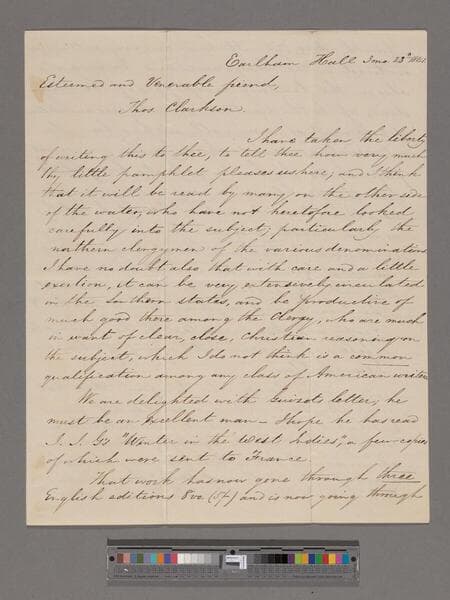 Earlham Hall 3mo 23d 1841
Esteemed and Venerable friend,
Thos Clarkson.
I have taken the liberty
of writing this to thee, to tell thee how very much
thy little pamphlet pleases us here; and I think
that it will be read by many, on the other side
of the water, who have not heretofore looked
carefully into the subject; particularly the
northern clergymen of the various denominations
I have no doubt also that with care and a little
exertion, it can be very extensively circulated
in the southern states, and be productive of
much good there among the Clergy, who are much
in want of clear, close, Christian reasoning on
the subject, which I do not think is a common
qualification among any class of American writers
We are delighted with Guizots letter; he
must be an excellent man - I hope he has read
J. J. G's "Winter in the West Indies", a few copies
of which were sent to France.
That work has now gone through three
English editions 8vo (5/) and is now going through